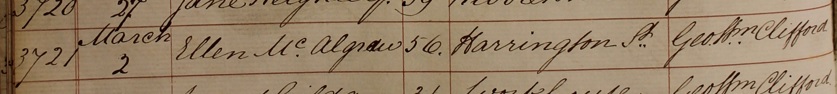 3720 27
March
3721 2 Ellen McAlgrew 56. Harrington St. Geo. Wm Clifford
Geo Wm Clifford